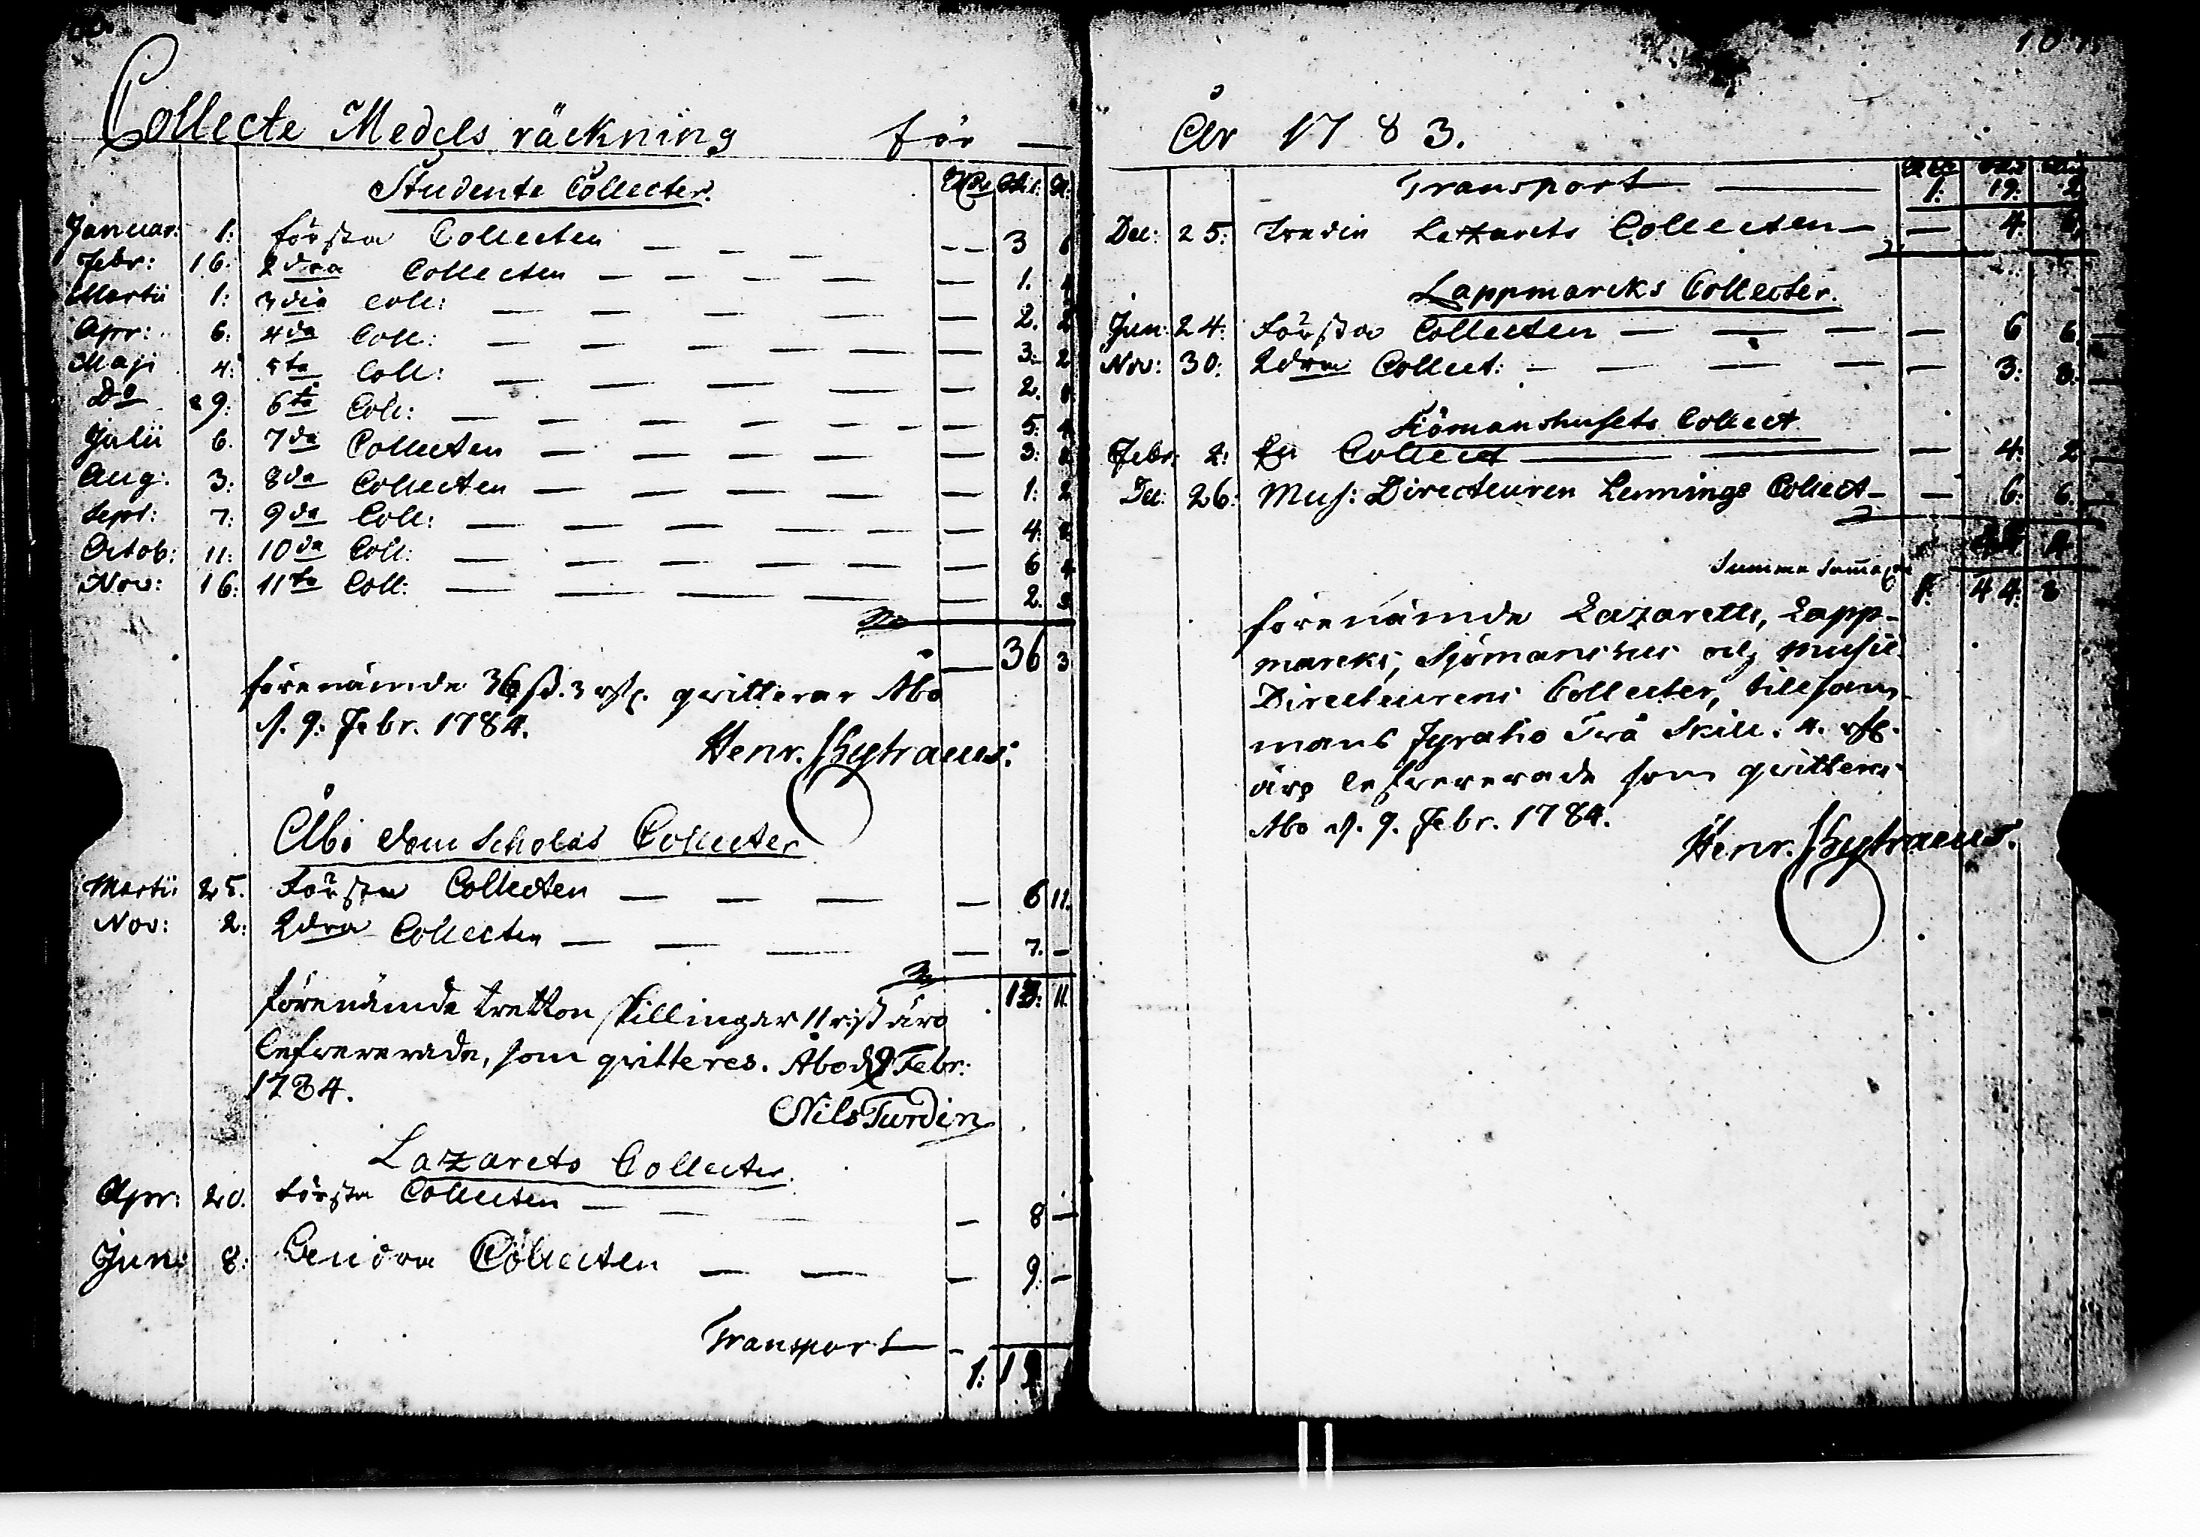 Collecte Medels räckning för —
Studente Collecter. Rd Skil: R:
Januar: 1: första Collecten — — — 3
Febr: 16: 2dra Collecten — — — — 1.
Martii 1: 3dia Coll: — — — — 2.
Apr: 6: 4da Coll: — — — — 3: 2
Maji 4: 5ta Coll: — — — — 2.
Do 29: 6ta Coll: — — — — 5.
Julii 6. 7da Collecten — — — — 3:
Aug: 3: 8da Collecten — — — — 1: 2
Sept: 7: 9da Coll: — — — — 4.
Octob: 11: 10da Coll: — — — — 6 4
Nov: 16: 11ta Coll: — — — — 2.
— 36 3
förenämde 36 ß. 3 rst. qvitterar Åbo
d. 9. Febr. 1784.
Henr. Skytraeus.
Åbo Dom Scholas Collecter
Martii 25. Första Collecten — — — — 6 11.
Nov: 2: 2dra Collecten — — — — 7. —
13: 11.
förenämde tretton skillingar 11 r:st äro
lefvererade, som qvitteres. Åbo d 9 Febr:
1784.
Nils Turdin
Lazarets Collecter
Apr: 20. första Collecten — — 8 —
Jun: 8: Andra Collecten — — — 9. —
Transport — 1: 19
År 1783.
Transport — 1: 19: 2
Dec: 25: Tredie Lazarets Collecten — — 4. 6.
Lappmarcks Collecter.
Jun: 24: Första Collecten — — — — 6 6.
Nov: 30: 2dra Collect: — — — — 3: 8.
Siömanshusets Collect
Febr: 2: En Collect — — 4: 2
Dec: 26: Mus: Directeuren Lennings Collect — — 6: 6.
Summa Summarum 1: 44: 8
förenämde Lazaretts, Lapp-
marcks, Sjömanshus och Music
Directeurens Collecter, tillsam-
mans Fyratio två Skill. 4. rst.
äro lefvererade som qvitteras
Åbo d. 9. Febr. 1784.
Henr. Skytraeus.